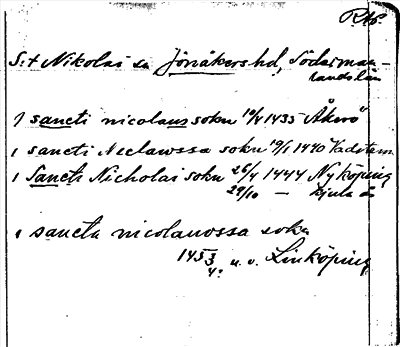 RAp.
S:t Nikolai sn Jönåkers hd, Söderman-
landslän
J sancti nicolaus sokn 19/4 1435 Åkerö
i sancti Neclawssa sokn 19/1 1440 Vadstena
i Sancti Nicholai sokn 26/4 1444 Nyköping
29/10 — Kjula ö
i sancta nicolauossa sokn
1453 3/4. u. o. Linköping